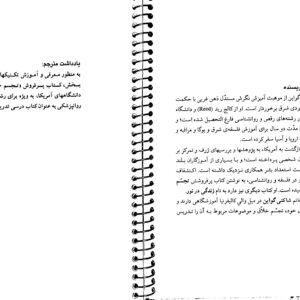 نویسنده
گواین از موهبت آمیزش نگرش مستدل ذهن غربی با حکمت
ودی شرق برخوردار است. او از کالج رید (Reed) و دانشگاه
در رشته‌های رقص و روانشناسی فارغ التحصیل شده است؛ و
مدت دو سال برای آموزش فلسفه‌ی شرق و یوگا و مراقبه و
اروپا و آسیا سفر کرده است.
ازگشت به آمریکا، به پژوهشها و بررسیهای ژرف و تمرکز بر
شخصی پرداخته است؛ و با بسیاری از آموزگاران بلند
استعداد بشر همکاری نزدیک داشته است. اکتشافات
فلسفه و روانشناسی، به نوشتن کتاب پرفروش تجسم
است. او کتاب دیگری نیز دارد به نام زندگی در نور.
شاکتی گواین در میل والی کالیفرنیا آموزشگاهی دارند و
خود، تجسم خلاق و موضوعات مربوط به آن را تدریس
یادداشت مترجم:
به منظور معرفی و آموزش تکنیکهای
بخش، کتاب پرفروش «تجسم
دانشگاههای آمریکا، به ویژه برای رشته
روانپزشکی به عنوان کتاب درسی تدری